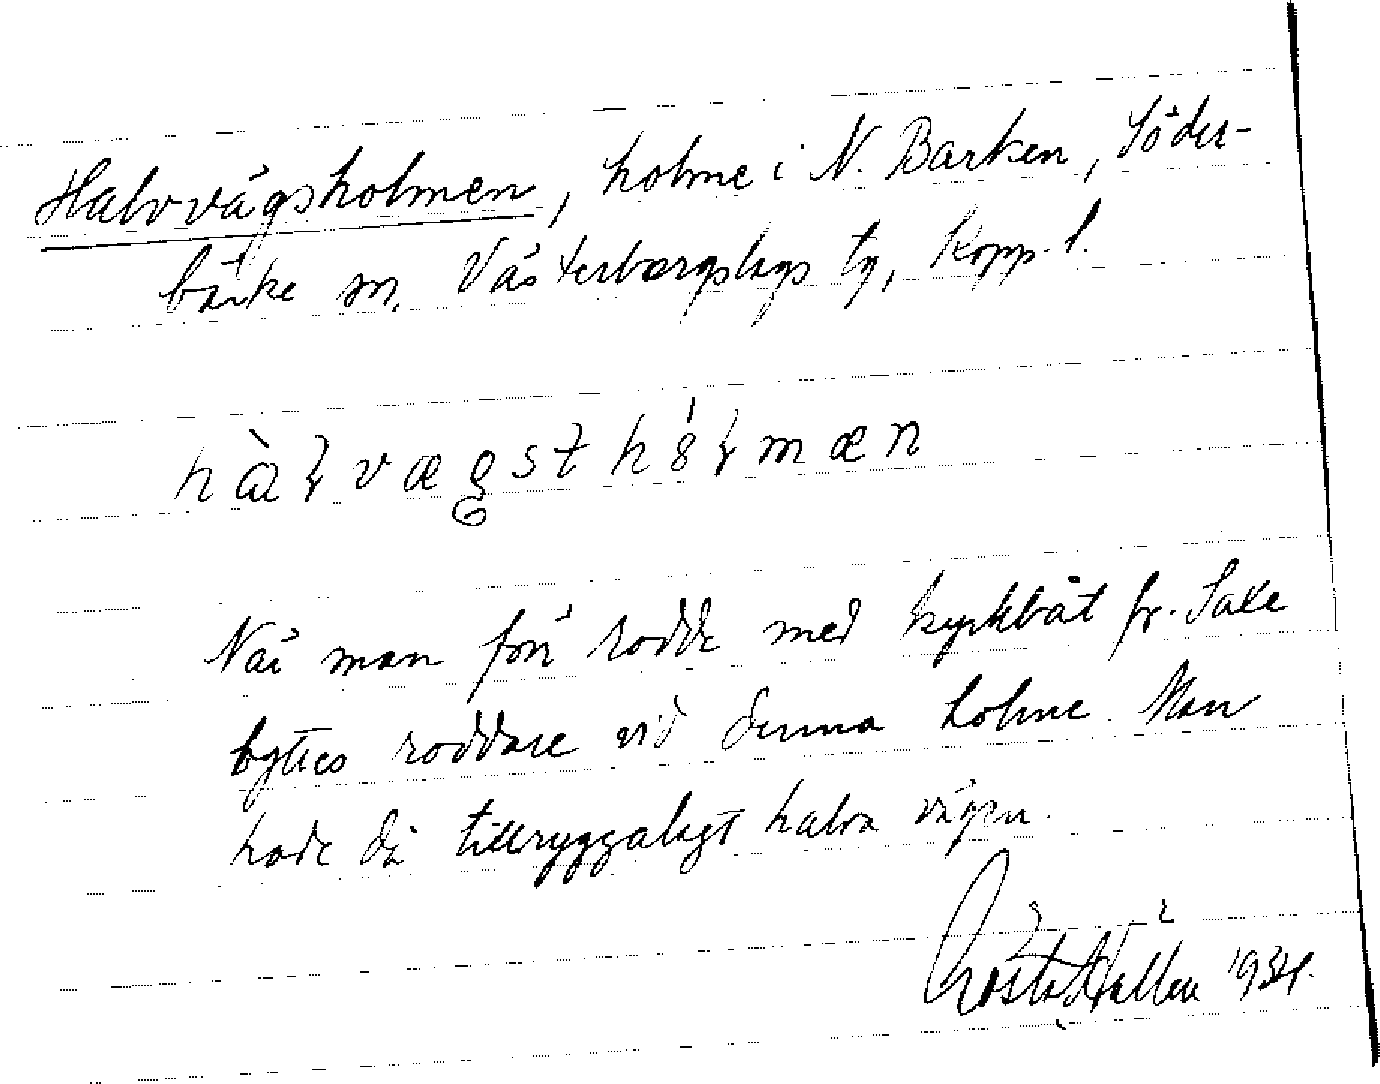 Halvvägsholmen, holme i N. Barken, Söder-
bärke sn, Västerbergslags tg, Kopp. l.
När man förr rodde med kyrkbåt fr. Saxe
byttes roddare vid denna holme. Man
hade då tillryggalagt halva vägen.
Gösta Hallén 1934.